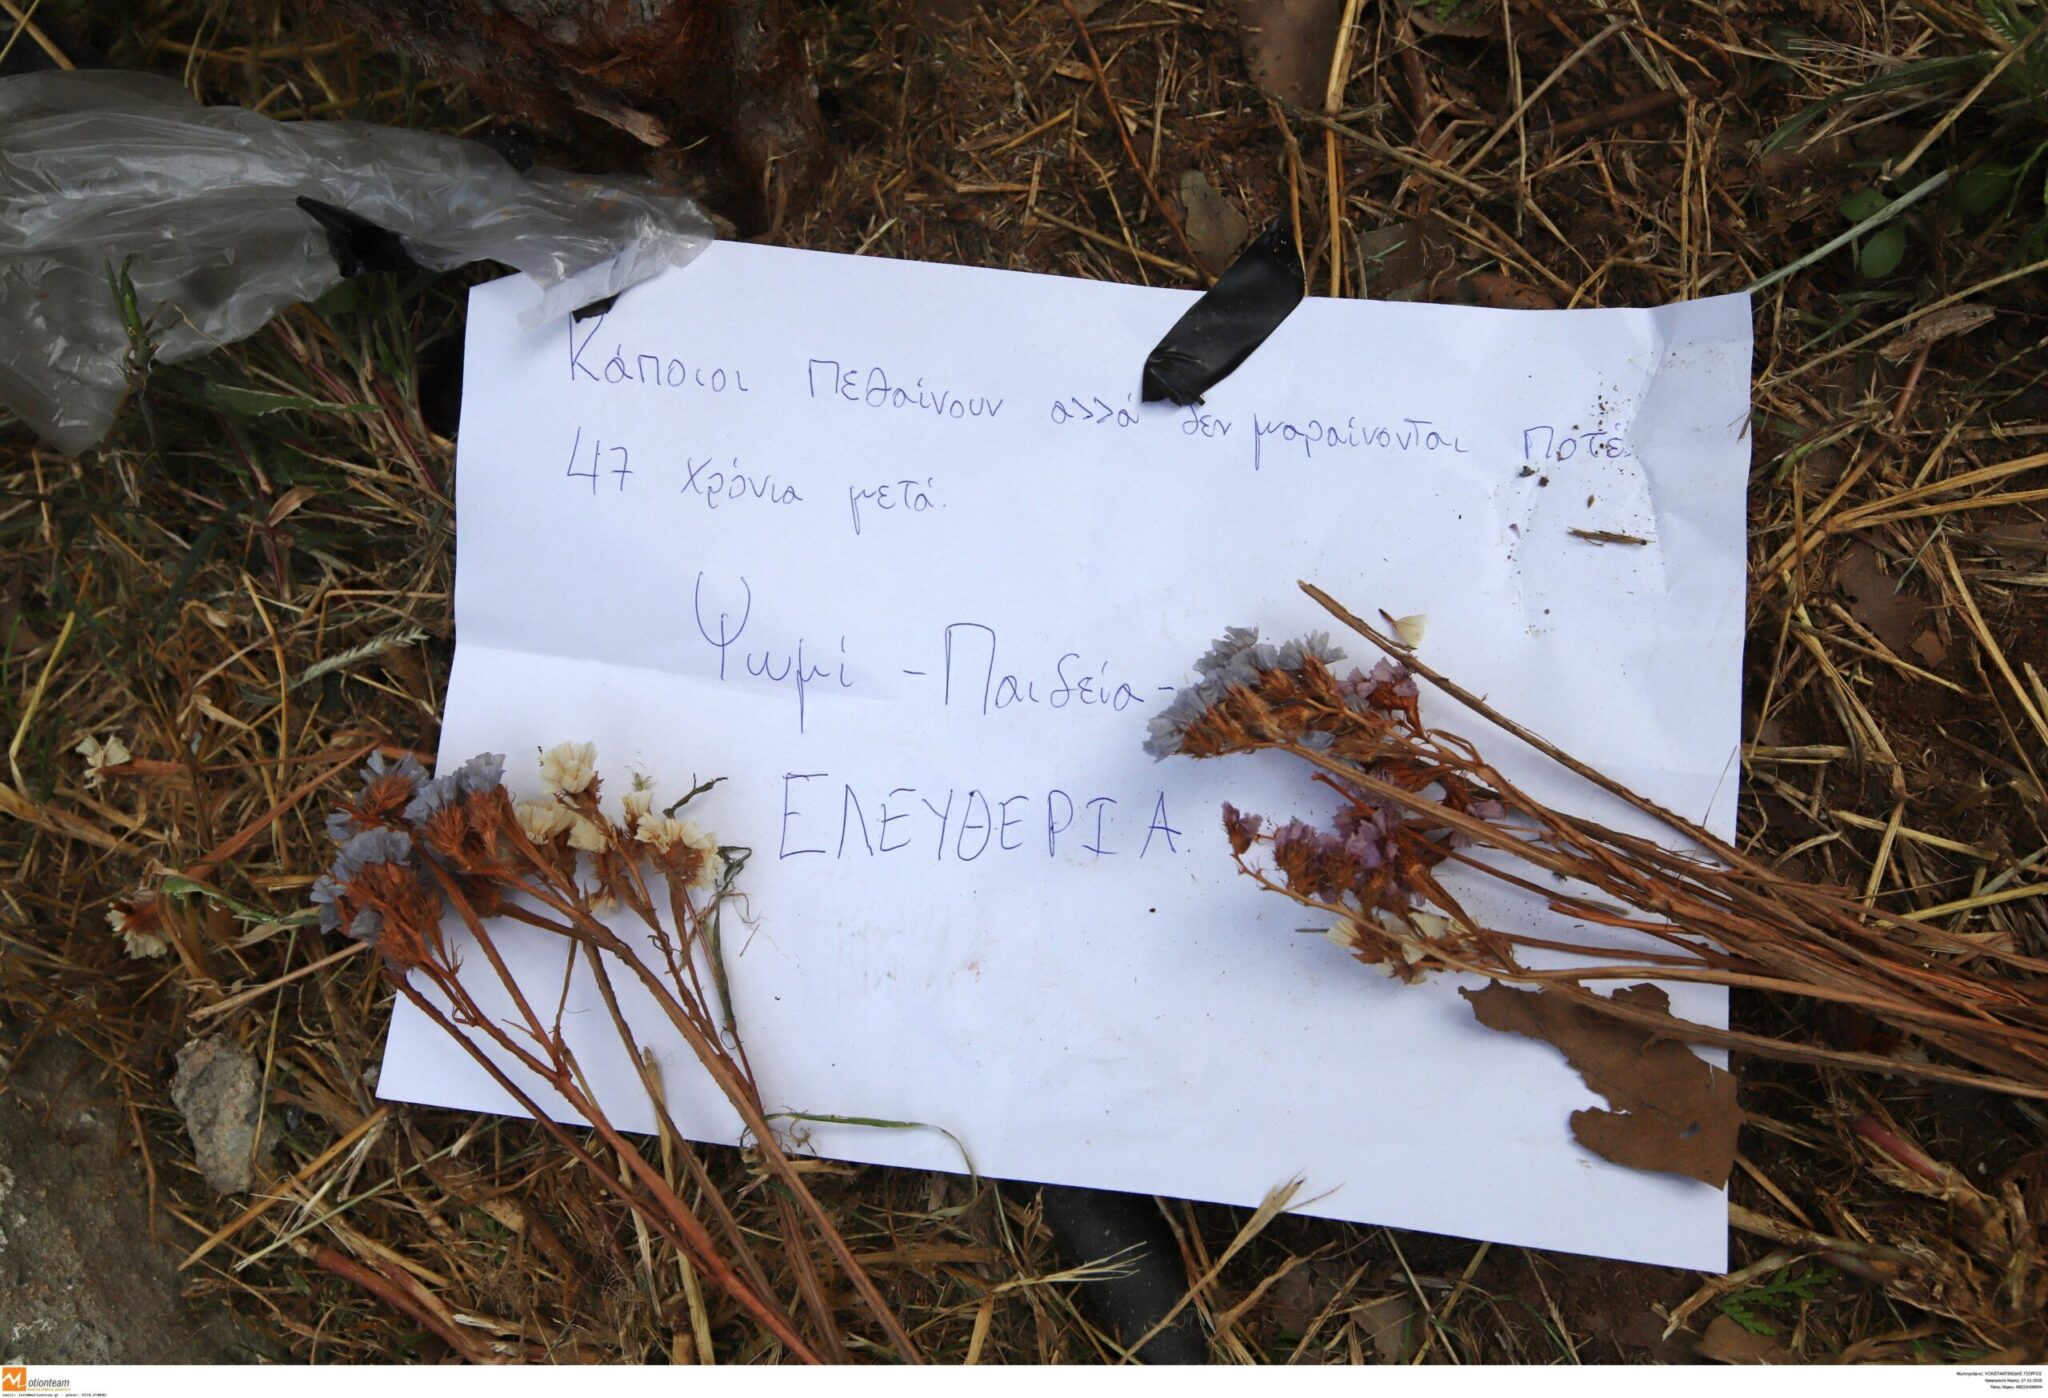 Κάποιοι πεθαίνουν αλλά δεν μαραίνονται ποτέ.
47 χρόνια μετά.
Ψωμί - Παιδεία -
ΕΛΕΥΘΕΡΙΑ
Motionteam
Φωτογράφος: ΚΩΝΣΤΑΝΤΙΝΙΔΗΣ ΓΙΩΡΓΟΣ
Ημερομηνία Λήψης: 17-11-2020
Τόπος Λήψης: ΘΕΣΣΑΛΟΝΙΚΗ